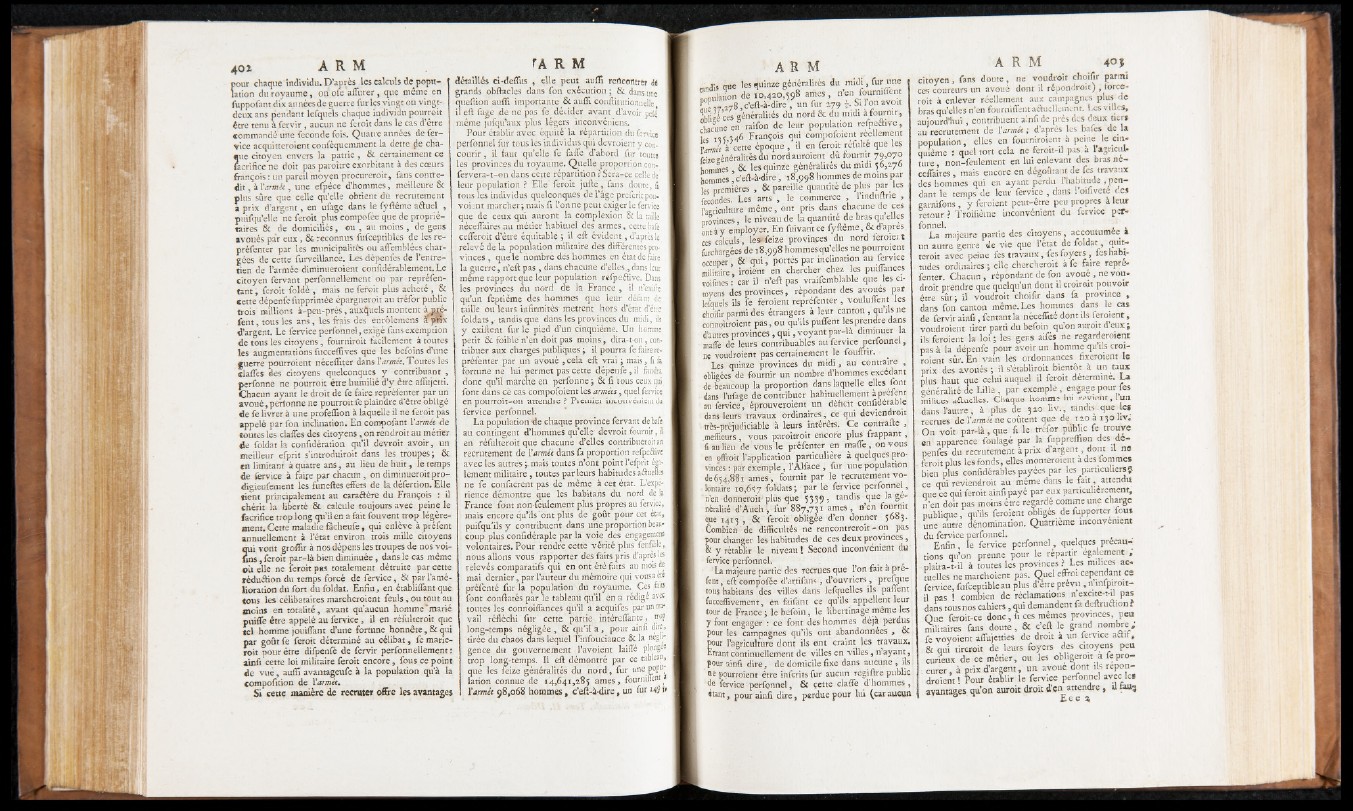 402 A R M
pour chaque individu. D'après les calculs de popu-
lation du royaume, on ose assurer, que même en
supposant dix années de guerre sur les vingt ou vingt-
deux ans pendant lesquels chaque individu pourroit
être tenu à servir, aucun ne seroit dans le cas d'être
commandé une seconde fois. Quatre années de ser-
vice acquitteroient conséquemment la dette de cha-
que citoyen envers la patrie, & certainement ce
sacrifice ne doit pas paroitre exorbitant à des cœurs
françois : un pareil moyen procureroit, sans contre-
dit, à l'armée, une espèce d'hommes, meilleure &
plus sûre que celle qu'elle obtient du recrutement
à prix d'argent, en usage dans le système actuel,
puisqu'elle ne seroit plus composée que de proprié-
taires & de domiciliés, ou, au moins, de gens
avoués par eux, & reconnus susceptibles de les re-
présenter par les municipalités ou assemblées char-
gées de cette surveillance. Les dépenses de l'entre-
tien de l'armée diminueroient considérablement. Le
citoyen servant personnellement ou par représen-
tant, seroit soldé, mais ne seroit plus acheté, &
cette dépense supprimée épargneroit au trésor public
trois millions à-peu-près, auxquels montent à pré-
sent, tous les ans, les frais des enrôlemens à prix
d'argent. Le service personnel, exigé sans exemption
de tous les citoyens, fourniroit facilement à toutes
les augmentations successives que les besoins d'une
guerre pourroient nécessiter dans l'armée. Toutes les
classes des citoyens quelconques y contribuant,
personne ne pourroit être humilié d'y être assujetti.
Chacun ayant le droit de se faire représenter par un
avoué, personne ne pourroit se plaindre d'être obligé
de se livrer à une profession à laquelle il ne seroit pas
appelé par son inclination. En composant l'armée de
toutes les classes des citoyens, on rendroit au métier
de soldat la considération qu'il devroit avoir, un
meilleur esprit s'introduiroit dans les troupes ; &
en limitant à quatre ans, au lieu de huit, le temps
de service à faire par chacun, on diminueroit pro-
digieusement les funestes effets de la désertion. Elle
tient principalement au caractère du François : il
chérit la liberté & calcule toujours avec peine le
sacrifice trop long qu'il en a fait souvent trop légère-
ment. Cette maladie fâcheuse, qui enlève à présent
annuellement à l'état environ trois mille citoyens
qui vont grossir à nos dépens les troupes de nos voi-
sins, seroit par-là bien diminuée, dans le cas même
où elle ne seroit pas totalement détruite par cette
réduction du temps forcé de service, & par l'amé-
lioration du sort du soldat. Enfin, en établissant que
tous les célibataires marcheroient seuls, ou tout au
moins en totalité, avant qu'aucun homme marié
puisse être appelé au service, il en résulteroit que
tel homme jouissant d'une fortune honnête, & qui
par goût se seroit déterminé au célibat, se marie-
roit pour être dispensé de servir personnellement :
ainsi cette loi militaire seroit encore, sous ce point
de vue, aussi avantageuse à la population qu'à la
composition de l'armée.
Si cette manière de recruter offre les avantages
A R M
détaillés ci-dessus, elle peut aussi rencontrer de
grands obstacles dans son exécution ; & dans une
question aussi importante & aussi constitutionnelle,
il est sage de ne pas se décider avant d'avoir pesé
même jusqu'aux plus légers inconvéniens.
Pour établir avec équité la répartition du service
personnel sur tous les individus qui devroient y con-
courir, il faut qu'elle se fasse d'abord sur toutes
les provinces du royaume. Quelle proportion con-
servera-t-on dans cette répartition ? Sera-ce celle de
leur population ? Elle seroit juste, sans doute, si
tous les individus quelconques de l'âge prescrit pou-
voient marcher ; mais si l'on ne peut exiger le service
que de ceux qui auront la complexion & la taille
nécessaires au métier habituel des armes, cette base
cesseroit d'être équitable ; il est évident, d'après le
relevé de la population militaire des différentes pro-
vinces, que le nombre des hommes en état de faire
la guerre, n'est pas, dans chacune d'elles, dans leur
même rapport que leur population respective. Dans
les provinces du nord de la France, il n'existe
qu'un septième des hommes que leur défaut de
taille ou leurs infirmités mettent hors d'état d'être
soldats, tandis que dans les provinces du midi, ils
y existent sur le pied d'un cinquième. Un homme
petit & foible n'en doit pas moins, dira-t-on, con-
tribuer aux charges publiques ; il pourra se faire re-
présenter par un avoué, cela est vrai ; mais, si sa
fortune ne lui permet pas cette dépense, il faudra
donc qu'il marche en personne ; & si tous ceux qui
sont dans ce cas composoient les armées, quel service
en pourroit-on attendre ? Premier inconvénient du
service personnel.
La population de chaque province servant de base
au contingent d'hommes qu'elle devroit fournir, il
en résulteroit que chacune d'elles contribueroit au
recrutement de l'armée dans sa proportion respective
avec les autres ; mais toutes n'ont point l'esprit éga-
lement militaire, toutes par leurs habitudes actuelles
ne se consacrent pas de même à cet état. L'expé-
rience démontre que les habitans du nord de la
France sont non-seulement plus propres au service,
mais encore qu'ils ont plus de goût pour cet état,
puisqu'ils y contribuent dans une proportion beau-
coup plus considérable par la voie des engagemens
volontaires. Pour rendre cette vérité plus sensible,
nous allons vous rapporter des faits pris d'après les
relevés comparatifs qui en ont été faits au mois de
mai dernier, par l'auteur du mémoire qui vous a été
présenté sur la population du royaume. Ces faits
sont constatés par le tableau qu'il en a rédigé avec
toutes les connoissances qu'il a acquises par un tra-
vail réfléchi sur cette partie intéressante, trop
long-temps négligée, & qu'il a, pour ainsi dire,
tirée du chaos dans lequel l'insouciance & la négli-
gence du gouvernement l'avoient laissé plongée
trop long-temps. Il est démontré par ce tableau,
que les seize généralités du nord, sur une popu-
lation connue de 14,641,285 ames, fournissent à
l'armée 98,068 hommes, c'est-à-dire, un sur 149
A R M
tandis que les quinze généralités du midi, sur une
population de 10,420,598 ames, n'en fournissent
que 37,278, c'est-à-dire, un sur 279 ½. Si l'on avoit
obligé ces généralités du nord & du midi à fournir,
chacune en raison de leur population respective,
les 135,346 François qui composoient réellement
l'armée à cette époque, il en seroit résulté que les
seize généralités du nord auroient dû fournir 79,070
hommes, & les quinze généralités du midi 56,276
hommes, c'est-à-dire, 18,998 hommes de moins par
les premières, & pareille quantité de plus par les
secondes. Les arts, le commerce, l'industrie,
l'agriculture même, ont pris dans chacune de ces
provinces, le niveau de la quantité de bras qu'elles
ont à y employer. En suivant ce système, & d'après
ces calculs, les seize provinces du nord seroient
surchargées de 18,998 hommes qu'elles ne pourroient
occuper, & qui, portés par inclination au service
militaire, iroient en chercher chez les puissances
voisines : car il n'est pas vraisemblable que les ci-
toyens des provinces, répondant des avoués par
lesquels ils se feroient représenter, voulussent les
choisir parmi des étrangers à leur canton, qu'ils ne
connoitroient pas, ou qu'ils pussent les prendre dans
d'autres provinces, qui, voyant par-là diminuer la
masse de leurs contribuables au service personnel,
ne voudroient pas certainement le souffrir.
Les quinze provinces du midi, au contraire,
obligées de fournir un nombre d'hommes excédant
de beaucoup la proportion dans laquelle elles sont
dans l'usage de contribuer habituellement à présent
au service, éprouveroient un déficit considérable
dans leurs travaux ordinaires, ce qui deviendroit
très-préjudiciable à leurs intérêts. Ce contraste,
messieurs, vous paroitroit encore plus frappant,
si au lieu de vous le présenter en masse, on vous
en offroit l'application particulière à quelques pro-
vinces : par exemple, l'Alsace, sur une population
de 654,881 ames, fournit par le recrutement vo-
lontaire 10,657 soldats ; par le service personnel,
n'en donneroit plus que 5339, tandis que la gé-
néralité d'Auch, sur 887,731 ames, n'en fournit
que 1413, & seroit obligée d'en donner 5683.
Combien de difficultés ne rencontreroit-on pas
pour changer les habitudes de ces deux provinces,
& y rétablir le niveau ! Second inconvénient du
service personnel.
La majeure partie des recrues que l'on fait à pré-
sent, est composée d'artisans, d'ouvriers, presque
tous habitans des villes dans lesquelles ils passent
successivement, en faisant ce qu'ils appellent leur
tour de France ; le besoin, le libertinage même les
y font engager : ce sont des hommes déjà perdus
pour les campagnes qu'ils ont abandonnées, &
pour l'agriculture dont ils ont craint les travaux.
Errant continuellement de villes en villes, n'ayant,
pour ainsi dire, de domicile fixe dans aucune, ils
ne pourroient être inscrits sur aucun registre public
de service personnel, & cette classe d'hommes,
étant, pour ainsi dire, perdue pour lui (car aucun
A R M 403
citoyen, sans doute, ne voudroit choisir parmi
ces coureurs un avoué dont il répondroit), force-
roit à enlever réellement aux campagnes plus de
bras qu'elles n'en fournissent actuellement. Les villes,
aujourd'hui, contribuent ainsi de près des deux tiers
au recrutement de l'armée ; d'après les bases de la
population, elles en fourniroient à peine le cin-
quième : quel tort cela ne feroit-il pas à l'agricul-
ture, non-seulement en lui enlevant des bras né-
cessaires, mais encore en dégoûtant de ses travaux
des hommes qui en ayant perdu l'habitude, pen-
dant le temps de leur service, dans l'oisiveté des
garnisons, y seroient peut-être peu propres à leur
retour ? Troisième inconvénient du service per-
sonnel.
La majeure partie des citoyens, accoutumée à
un autre genre de vie que l'état de soldat, quit-
teroit avec peine ses travaux, ses foyers, ses habi-
tudes ordinaires ; elle chercheroit à se faire repré-
senter. Chacun, répondant de son avoué, ne vou-
droit prendre que quelqu'un dont il croiroit pouvoir
être sûr ; il voudroit choisir dans sa province,
dans son canton même. Les hommes dans le cas
de servir ainsi, sentant la nécessité dont ils seroient,
voudroient tirer parti du besoin qu'on auroit d'eux ;
ils feroient la loi ; les gens aisés ne regarderoient
pas à la dépense pour avoir un homme qu'ils croi-
roient sûr. En vain les ordonnances fixeroient le
prix des avoués ; il s'établiroit bientôt à un taux
plus haut que celui auquel il seroit déterminé. La
généralité de Lille, par exemple, engage pour ses
milices actuelles. Chaque homme lui revient, l'un
dans l'autre, à plus de 320 liv., tandis que les
recrues de l'armée ne coûtent que de 120 à 130 liv.
On voit par-là, que si le trésor public se trouve
en apparence soulagé par la suppression des dé-
penses du recrutement à prix d'argent, dont il ne
feroit plus les fonds, elles monteroient à des sommes
bien plus considérables payées par les particuliers ;
ce qui reviendroit au même dans le fait, attendu
que ce qui seroit ainsi payé par eux particulièrement,
n'en doit pas moins être regardé comme une charge
publique, qu'ils seroient obligés de supporter sous
une autre dénomination. Quatrième inconvénient
du service personnel.
Enfin, le service personnel, quelques précau-
tions qu'on prenne pour le répartir également,
plaira-t-il à toutes les provinces ? Les milices ac-
tuelles ne marchoient pas. Quel effroi cependant ce
service, susceptible au plus d'être prévu, n'inspiroit-
il pas ! combien de réclamations n'excite-t-il pas
dans tous nos cahiers, qui demandent sa destruction !
Que seroit-ce donc, si ces mêmes provinces, peu
militaires sans doute, & c'est le grand nombre,
se voyoient assujetties de droit à un service actif,
& qui tireroit de leurs foyers des citoyens peu
curieux de ce métier, ou les obligeroit à se pro-
curer, à prix d'argent, un avoué dont ils répon-
droient ! Pour établir le service personnel avec les
avantages qu'on auroit droit d'en attendre, il faut
E e e 2